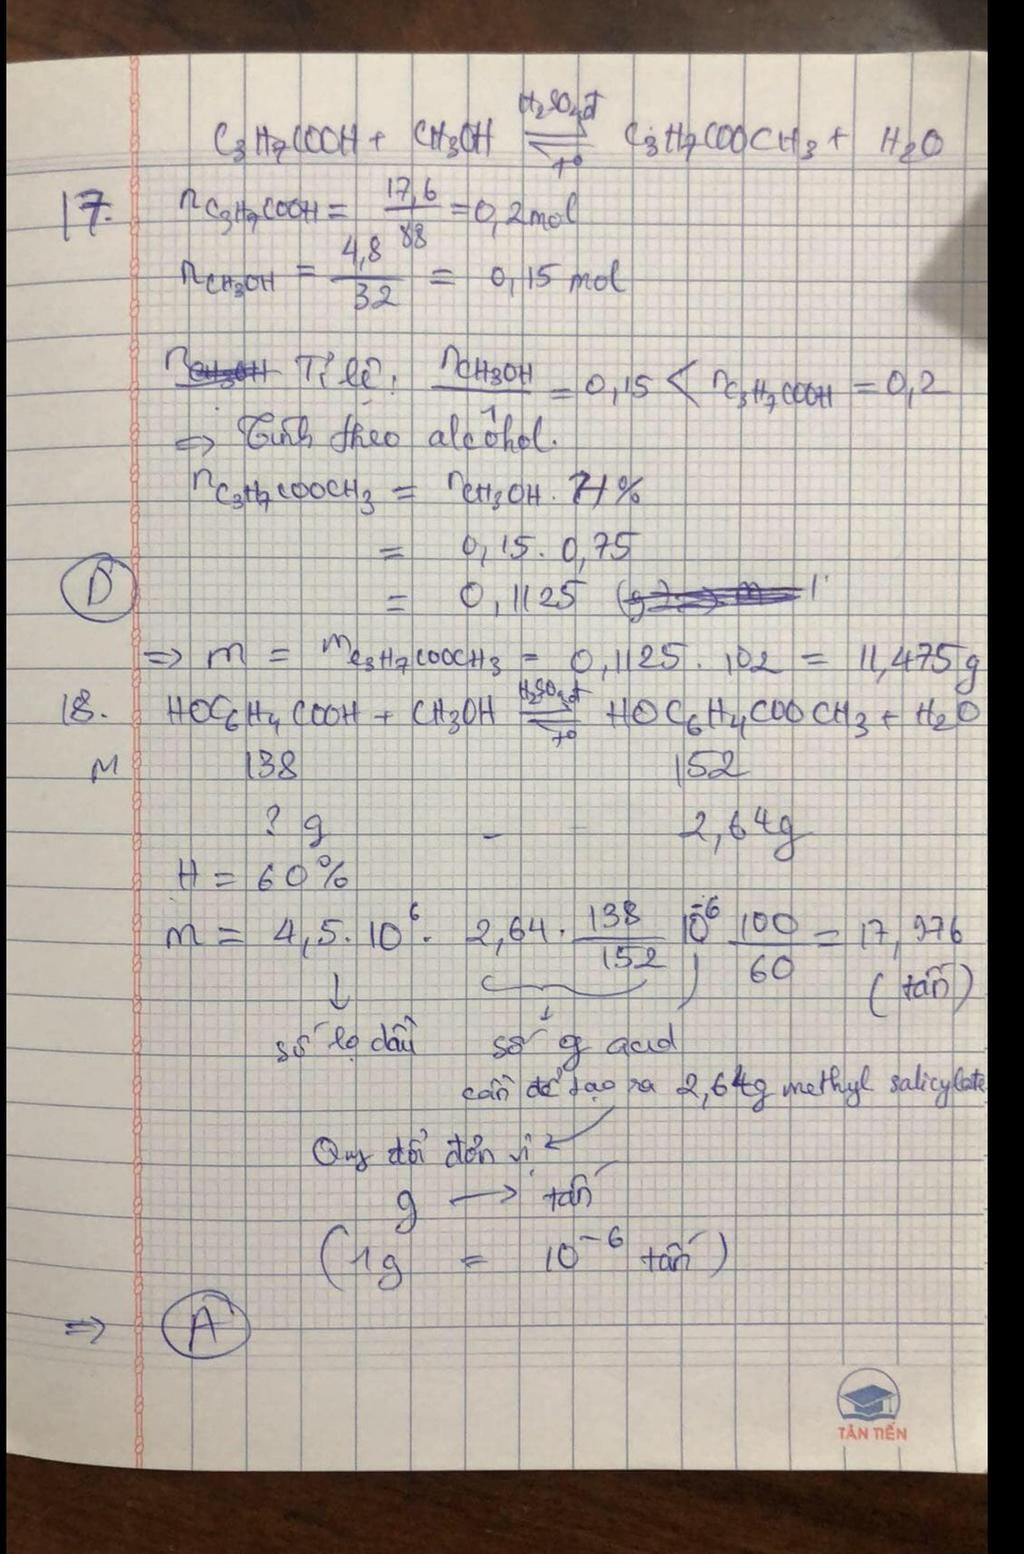 C₃H₇COOH + CH₃OH ⇌ C₃H₇COOCH₃ + H₂O
H₂SO₄đ
t°
17. nC₃H₇COOH = 17,6/88 = 0,2 mol
nCH₃OH = 4,8/32 = 0,15 mol
Tỉ lệ: nCH₃OH/1 = 0,15 < nC₃H₇COOH = 0,2
⇒ Tính theo alcohol.
nC₃H₇COOCH₃ = nCH₃OH . H%
= 0,15 . 0,75
D
= 0,1125
⇒ m = mC₃H₇COOCH₃ = 0,1125 . 102 = 11,475g
18. HOC₆H₄COOH + CH₃OH ⇌ HOC₆H₄COOCH₃ + H₂O
H₂SO₄đ
t°
M 138 152
? g - 2,64g
H = 60%
m = 4,5.10⁶ . 2,64 . 138/152 10⁻⁶ 100/60 = 17,976
(tấn)
↓ ↓
số lọ dầu số g acid
cần để tạo ra 2,64g methyl salicylate
Quy đổi đơn vị
g → tấn
(1g = 10⁻⁶ tấn)
⇒ A
TÂN TIẾN